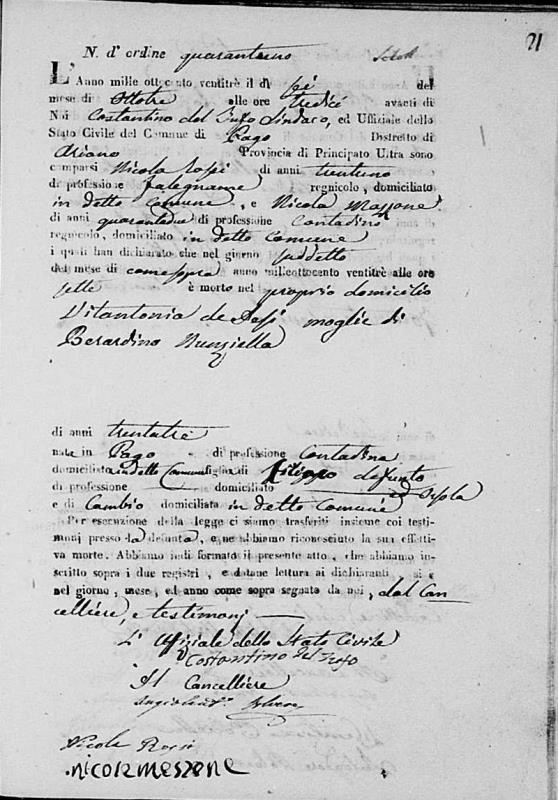 21
N. d'ordine quarantuno
L'Anno mille ottocento ventitrè il dì sei del
mese di Ottobre alle ore tredici avanti di
Noi Costantino del Sindaco, ed Uffiziale dello
Stato Civile del Comune di Pago Distretto di
Ariano Provincia di Principato Ultra sono
comparsi Nicola Rossi di anni trentuno
di professione falegname regnicolo, domiciliato
in detto Comune, e Nicola Mazzone
di anni quarantadue di professione Contadino
regnicolo, domiciliato in detto Comune
i quali han dichiarato che nel giorno suddetto
del mese di come sopra anno mil'ottocento ventitrè alle ore
sette è morto nel proprio domicilio
Vitantonia de moglie di
Berardino Nunziella
di anni trentatrè
nata in Pago di professione Contadina
domiciliata in detto Comune figlia di Filippo defunto
di professione domiciliato
e di domiciliata in detto Comune
Per esecuzione della legge ci siamo trasferiti insieme coi testi-
monj presso la defunta, e ne abbiamo riconosciuto la sua effetti-
va morte. Abbiamo indi formato il presente atto, che abbiamo in-
scritto sopra i due registri, e datane lettura ai dichiaranti, si è
nel giorno, mese, ed anno come sopra segnato da noi, dal Can-
celliere, e testimonj
L'Uffiziale dello Stato Civile
Costantino del
Il Cancelliere
Nicola Rossi
nicola mezone